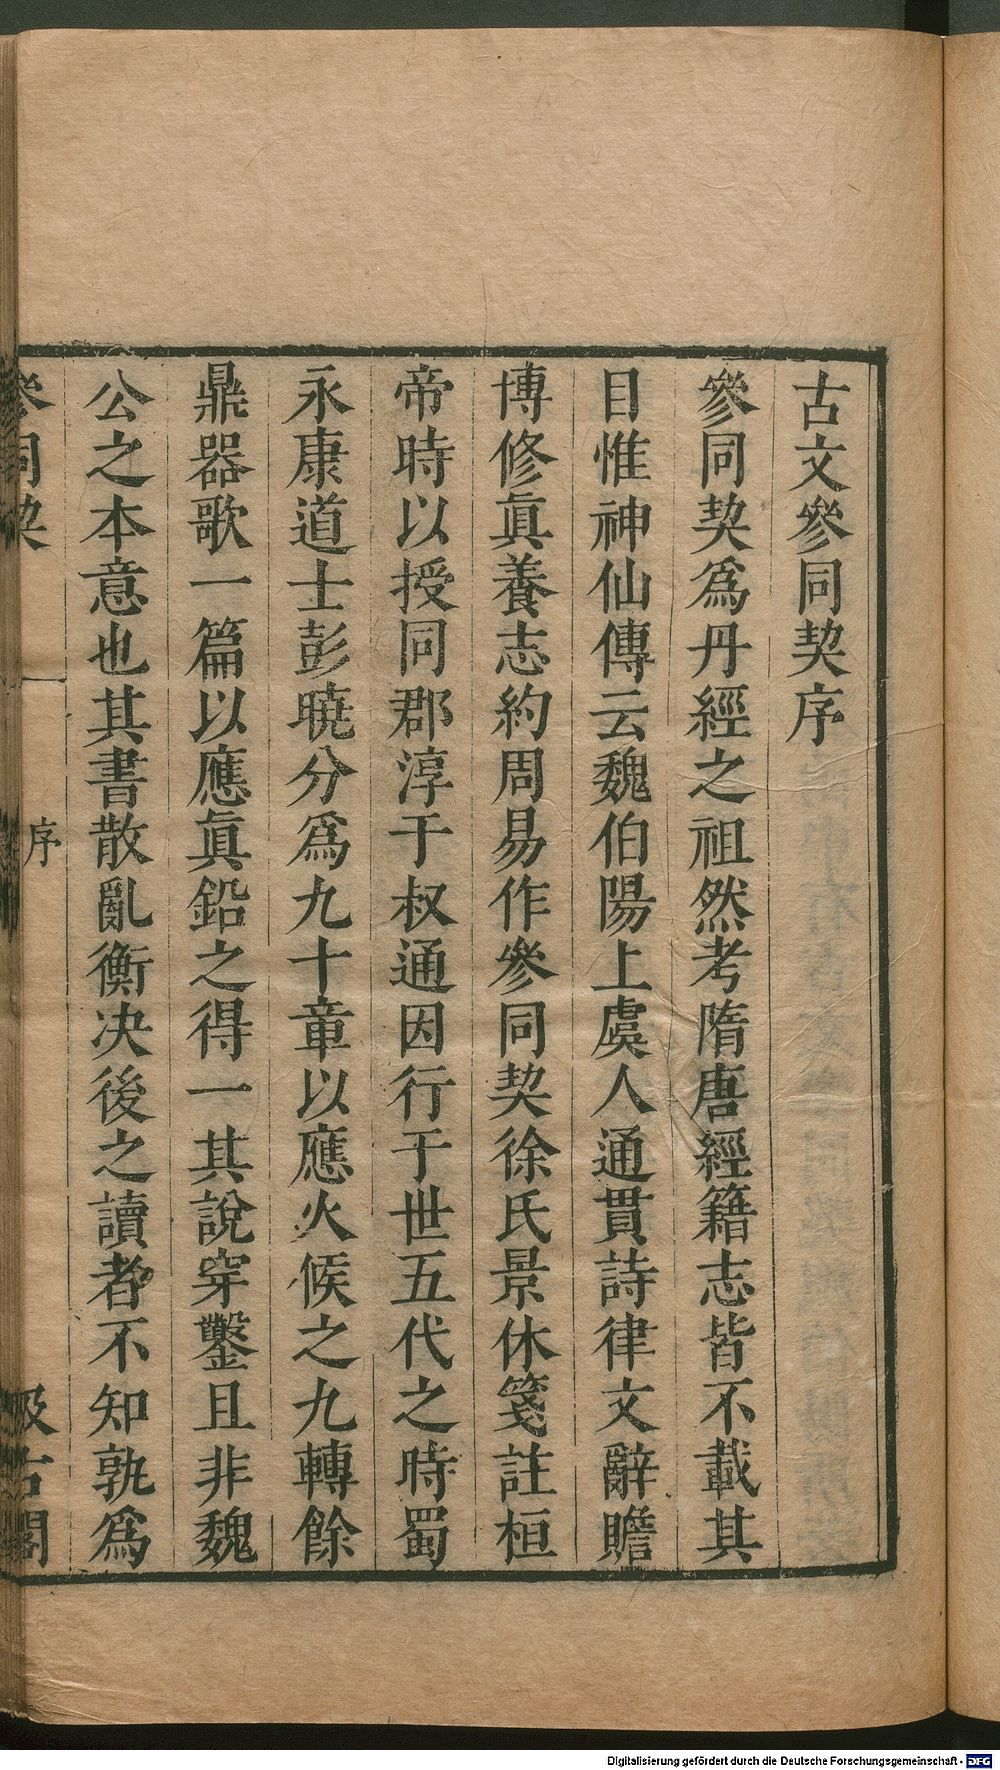 古文參同契序
參同契爲丹經之祖然考隋唐經籍志皆不載其
目惟神仙傳云魏伯陽上虞人通貫詩律文辭贍
博修眞養志約周易作參同契徐氏景休箋註桓
帝時以授同郡淳于叔通因行于世五代之時蜀
永康道士彭曉分爲九十章以應火候之九轉餘
鼎器歌一篇以應眞鉛之得一其說穿鑿且非魏
公之本意也其書散亂衡决後之讀者不知孰爲
參同契 序 汲古閣
Digitalisierung gefördert durch die Deutsche Forschungsgemeinschaft - DFG